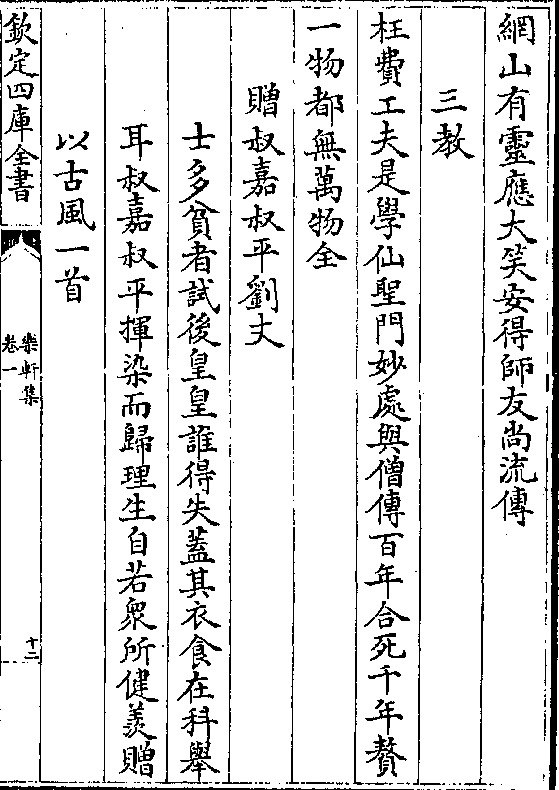 網山有靈應大笑安得師友尚流傳
三教
枉費工夫是學仙聖門妙處與僧傳百年合死千年贅
一物都無萬物全
贈叔嘉叔平劉丈
士多貧者試後皇皇誰得失蓋其衣食在科舉
耳叔嘉叔平揮染而歸理生自若衆所健羨贈
以古風一首
欽定四庫全書
樂軒集
卷一
十二